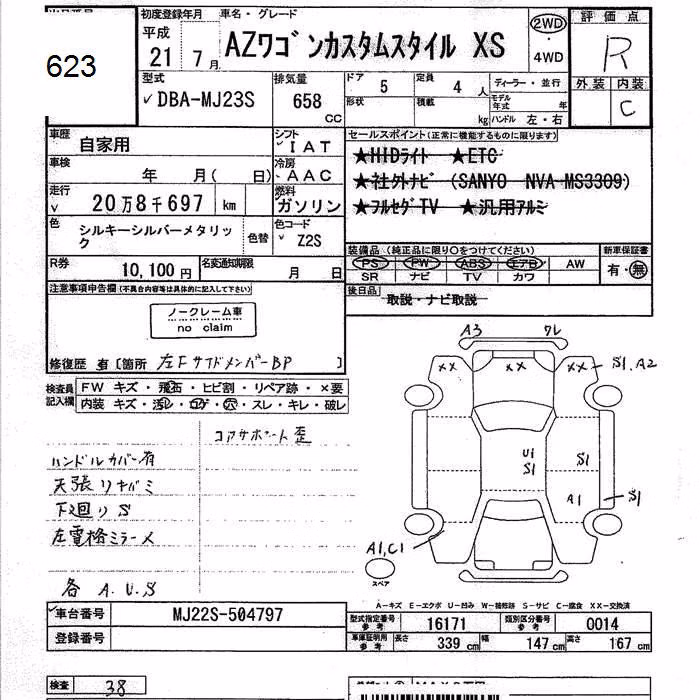 623
初度登録年月 車名・グレード
平成
21 7月
AZワゴンカスタムスタイル XS
2WD
4WD
評価点
R
外装 内装
C
型式
DBA-MJ23S
排気量
658
CC
ドア 5 定員 4 人
形状 積載 kg
ディーラー・並行
モデル年式 年
ハンドル 左・右
車歴 自家用
シフト IAT
車検 年 月( 日)
冷房 AAC
走行 20万8千697 km
燃料 ガソリン
色 シルキーシルバーメタリック 色替
色コード Z2S
R券 10,100円
名変通知期限 月 日
セールスポイント(正常に機能するものに限ります)
★HIDライト ★ETC
★社外ナビ (SANYO NVA-MS3309)
★フルセグTV ★汎用アルミ
装備品(純正品に限り○をつけてください)
PS PW ABS エアB AW
SR ナビ TV カワ
新車保証書
有・無
後日品 取説・ナビ取説
注意事項申告欄(不具合内容等は具体的に記入して下さい)
ノークレーム車
no claim
修復歴 有 [箇所 左Fサイドメンバー BP ]
検査員記入欄
FW キズ・飛石・ヒビ割・リペア跡・×要
内装 キズ・汚レ・コゲ・穴・スレ・キレ・破レ
コアサポート歪
ハンドルカバー有
天張リキバミ
下廻リS
左電格ミラー×
各 A.U.S
A3
ワレ
XX XX XX
S1,A2
U1
S1
S1
A1
S1
A1,C1
スペア
A-キズ E-エクボ U-凹み W-補修跡 S-サビ C-腐食 XX-交換済
車台番号 MJ22S-504797
登録番号
型式指定番号 参考 16171 類別区分番号 参考 0014
車庫証明用 参考 長さ 339 cm 幅 147 cm 高さ 167 cm
検査 38